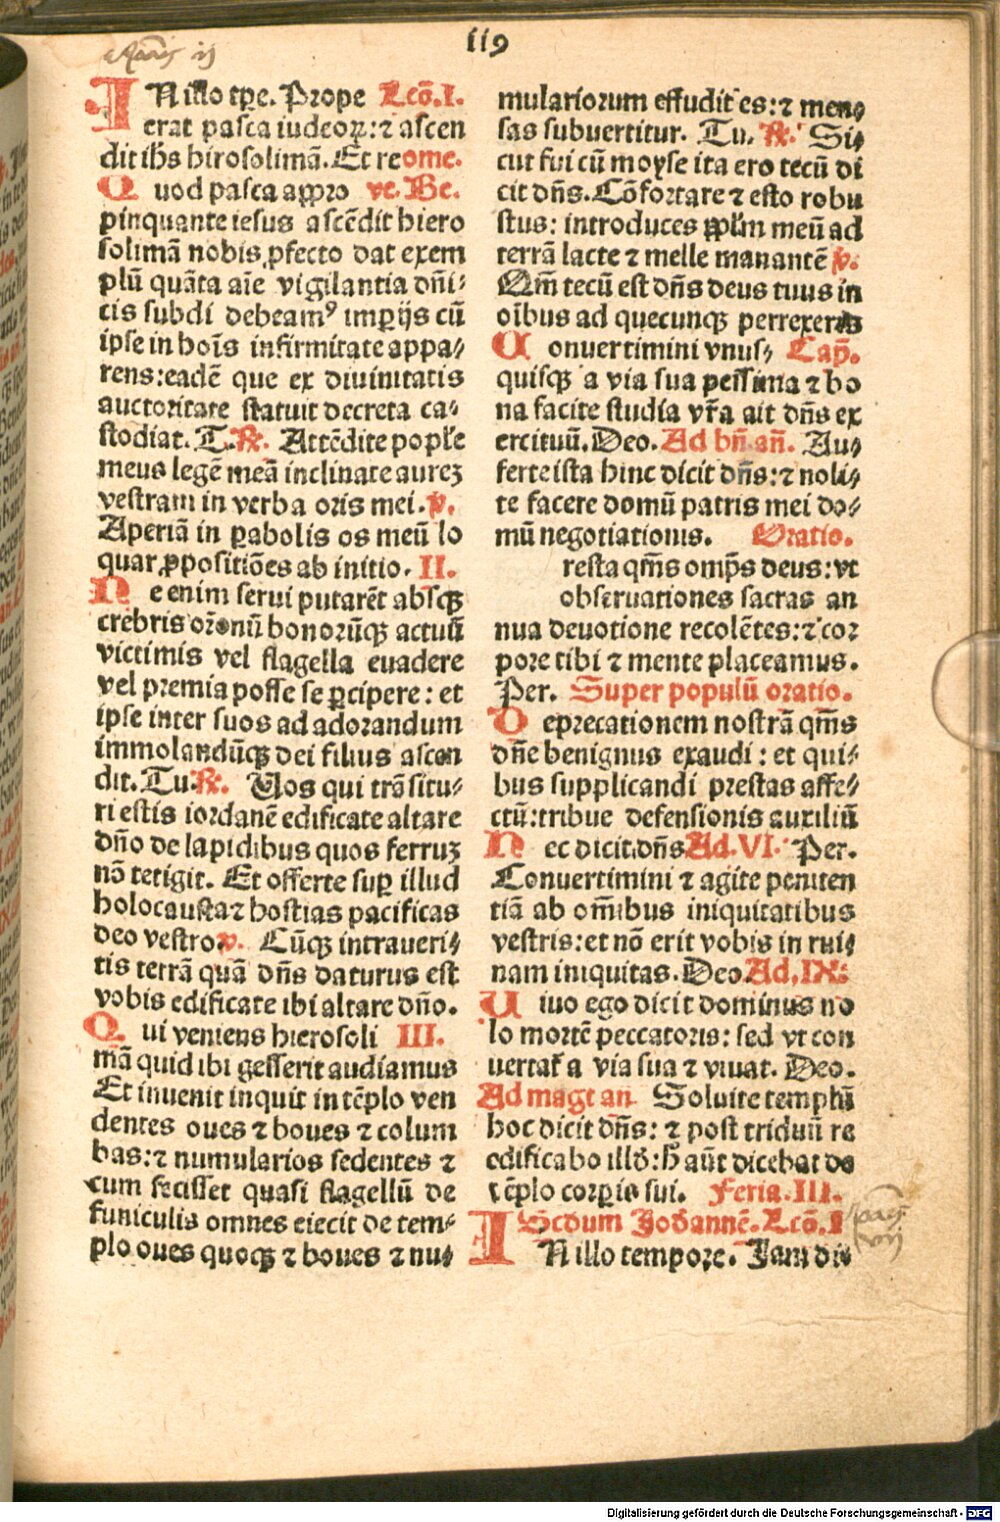 119
IN illo tꝑe. Prope Lcō.I.
erat pasca iudeoꝝ: ⁊ ascen
dit ihs hirosolimā. Et re ome.
Quod pasca appro ve. Be.
pinquante iesus ascēdit hiero
solimā nobis ꝓfecto dat exem
plū quāta aīe vigilantia dñi⸗
cis subdi debeamꝰ imꝑijs cū
ipse in hoīs infirmitate appa⸗
rens: eadē que ex diuinitatis
auctoritate statuit decreta ca⸗
stodiat. T. ℟. Attēdite popl'e
meus legē meā inclinate aureʒ
vestram in verba oris mei. v.
Aperiā in ꝑabolis os meū lo
quar ꝓpositiōes ab initio. II.
Ne enim serui putarēt absqꝫ
crebris or̄onū bonorūqꝫ actuū
victimis vel flagella euadere
vel premia posse se ꝑcipere: et
ipse inter suos ad adorandum
immolandūqꝫ dei filius ascen
dit. Tu. ℟. Uos qui trāsitu⸗
ri estis iordanē edificate altare
dño de lapidibus quos ferruʒ
nō tetigit. Et offerte suꝑ illud
holocausta ⁊ hostias pacificas
deo vestro v. Cūqꝫ intraueri⸗
tis terrā quā dñs daturus est
vobis edificate ibi altare dño.
Qui veniens hierosoli III.
mā quid ibi gesserit audiamus
Et inuenit inquit in tēplo ven
dentes oues ⁊ boues ⁊ colum
bas: ⁊ numularios sedentes ⁊
cum fecisset quasi flagellū de
funiculis omnes eiecit de tem⸗
plo oues quoqꝫ ⁊ boues ⁊ nu⸗
mulariorum effudit es: ⁊ men⸗
sas subuertitur. Tu. ℟. Si⸗
cut fui cū moyse ita ero tecū di
cit dñs. Cōfortare ⁊ esto robu
stus: introduces ppl'm meū ad
terrā lacte ⁊ melle manantē v.
Qm̄ tecū est dñs deus tuus in
oībus ad quecunqꝫ perrexeris
Conuertimini vnus⸗ Cap̄.
quisqꝫ a via sua pessima ⁊ bo
na facite studia vr̄a ait dñs ex
ercituū. Deo. Ad bn̄ an̄. Au⸗
ferte ista hinc dicit dñs: ⁊ noli⸗
te facere domū patris mei do⸗
mū negotiationis. Oratio.
resta qm̄s omp̄s deus: vt
obseruationes sacras an
nua deuotione recolētes: ⁊ cor
pore tibi ⁊ mente placeamus.
Per. Super populū oratio.
Deprecationem nostrā qm̄s
dñe benignus exaudi: et qui⸗
bus supplicandi prestas affe⸗
ctū: tribue defensionis auxiliū
Nec dicit. dñs Ad. VI. Per.
Conuertimini ⁊ agite peniten
tiā ab om̄ibus iniquitatibus
vestris: et nō erit vobis in rui⸗
nam iniquitas. Deo. Ad. IX:
Uiuo ego dicit dominus no
lo mortē peccatoris: sed vt con
uertat̄ a via sua ⁊ viuat. Deo.
Ad magt an Soluite templū
hoc dicit dñs: ⁊ post triduū re
edificabo illd: h̄ aūt dicebat de
tēplo corꝑis sui. Feria. III.
Scdum Johannē. Lcō. I
IN illo tempore. Jam die
Digitalisierung gefördert durch die Deutsche Forschungsgemeinschaft - DFG